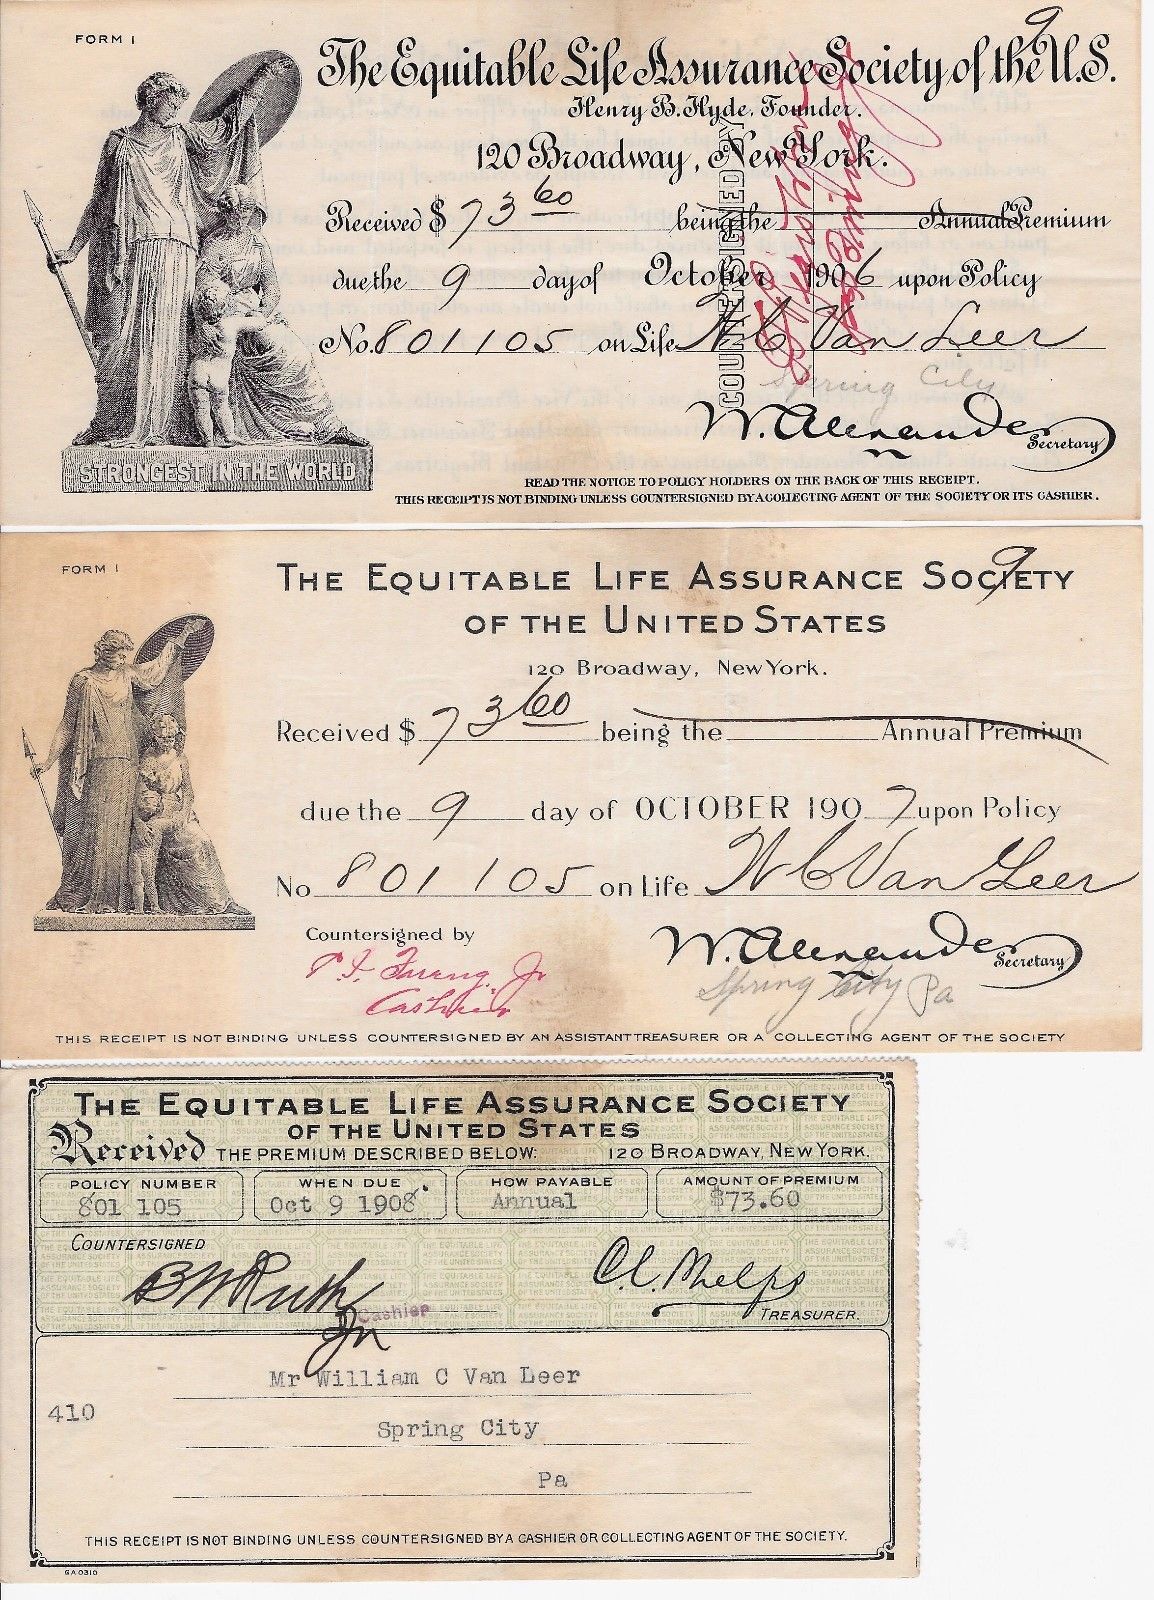 FORM 1
9
The Equitable Life Assurance Society of the U.S.
Henry B. Hyde, Founder.
120 Broadway, New York.
Received $ 73 60 being the Annual Premium
due the 9 day of October 1906 upon Policy
No. 801105 on Life W C Van Leer
COUNTERSIGNED BY
Spring City
W. Alexander
Secretary
STRONGEST IN THE WORLD
READ THE NOTICE TO POLICY HOLDERS ON THE BACK OF THIS RECEIPT.
THIS RECEIPT IS NOT BINDING UNLESS COUNTERSIGNED BY A COLLECTING AGENT OF THE SOCIETY OR ITS CASHIER.
FORM 1
9
THE EQUITABLE LIFE ASSURANCE SOCIETY
OF THE UNITED STATES
120 Broadway, New York.
Received $ 73 60 being the Annual Premium
due the 9 day of OCTOBER 1907 upon Policy
No 801105 on Life W C Van Leer
Countersigned by
Jr
Cashier
W. Alexander
Secretary
Spring City Pa
THIS RECEIPT IS NOT BINDING UNLESS COUNTERSIGNED BY AN ASSISTANT TREASURER OR A COLLECTING AGENT OF THE SOCIETY
THE EQUITABLE LIFE ASSURANCE SOCIETY
OF THE UNITED STATES
Received THE PREMIUM DESCRIBED BELOW: 120 BROADWAY, NEW YORK.
POLICY NUMBER WHEN DUE HOW PAYABLE AMOUNT OF PREMIUM
801 105 Oct 9 1908. Annual $73.60
COUNTERSIGNED
B W Ruth Jr
Cashier
C. L. Phelps
TREASURER.
Mr William C Van Leer
410
Spring City
Pa
THIS RECEIPT IS NOT BINDING UNLESS COUNTERSIGNED BY A CASHIER OR COLLECTING AGENT OF THE SOCIETY.
GA0310